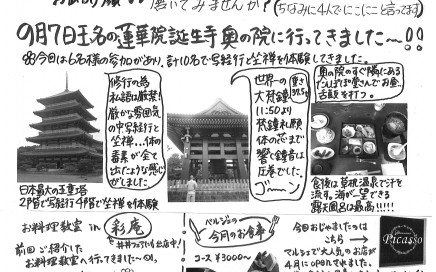 磨いてみませんか?(ちなみに4人でにこにこ言ってます)
9月7日玉名の蓮華院誕生寺奥の院に行ってきました〜!!
今回は6名様の参加があり、計10名で写経行と坐禅を体験してきました。
修行の為
私語は厳禁
厳かな雰囲気
の中写経行
と坐禅…体の
毒素が全て
出たような感じ
がしました
日本最大の五重塔
2階で写経行4階で坐禅を体験
世界一の
大梵鐘
重さ
37.5t
11:50より
梵鐘礼願
体の芯まで
響く鐘音は
圧巻でした。
ゴーン
奥の院のすぐ隣にある
たんぽぽ堂さんでお昼、
舌鼓を打つ。
食後は草枕温泉で汗を
流す。海が一望できる
露天風呂は最高!!!!
お料理教室 in 彩庵
前回ご紹介した
お料理教室に行ってきました〜。
ペルシェの
今月のお食事
コース ¥3000〜
今回おじゃましたのは
こちら→
マルシェで大人気のお店が
4月にOPENされました。
Picasso